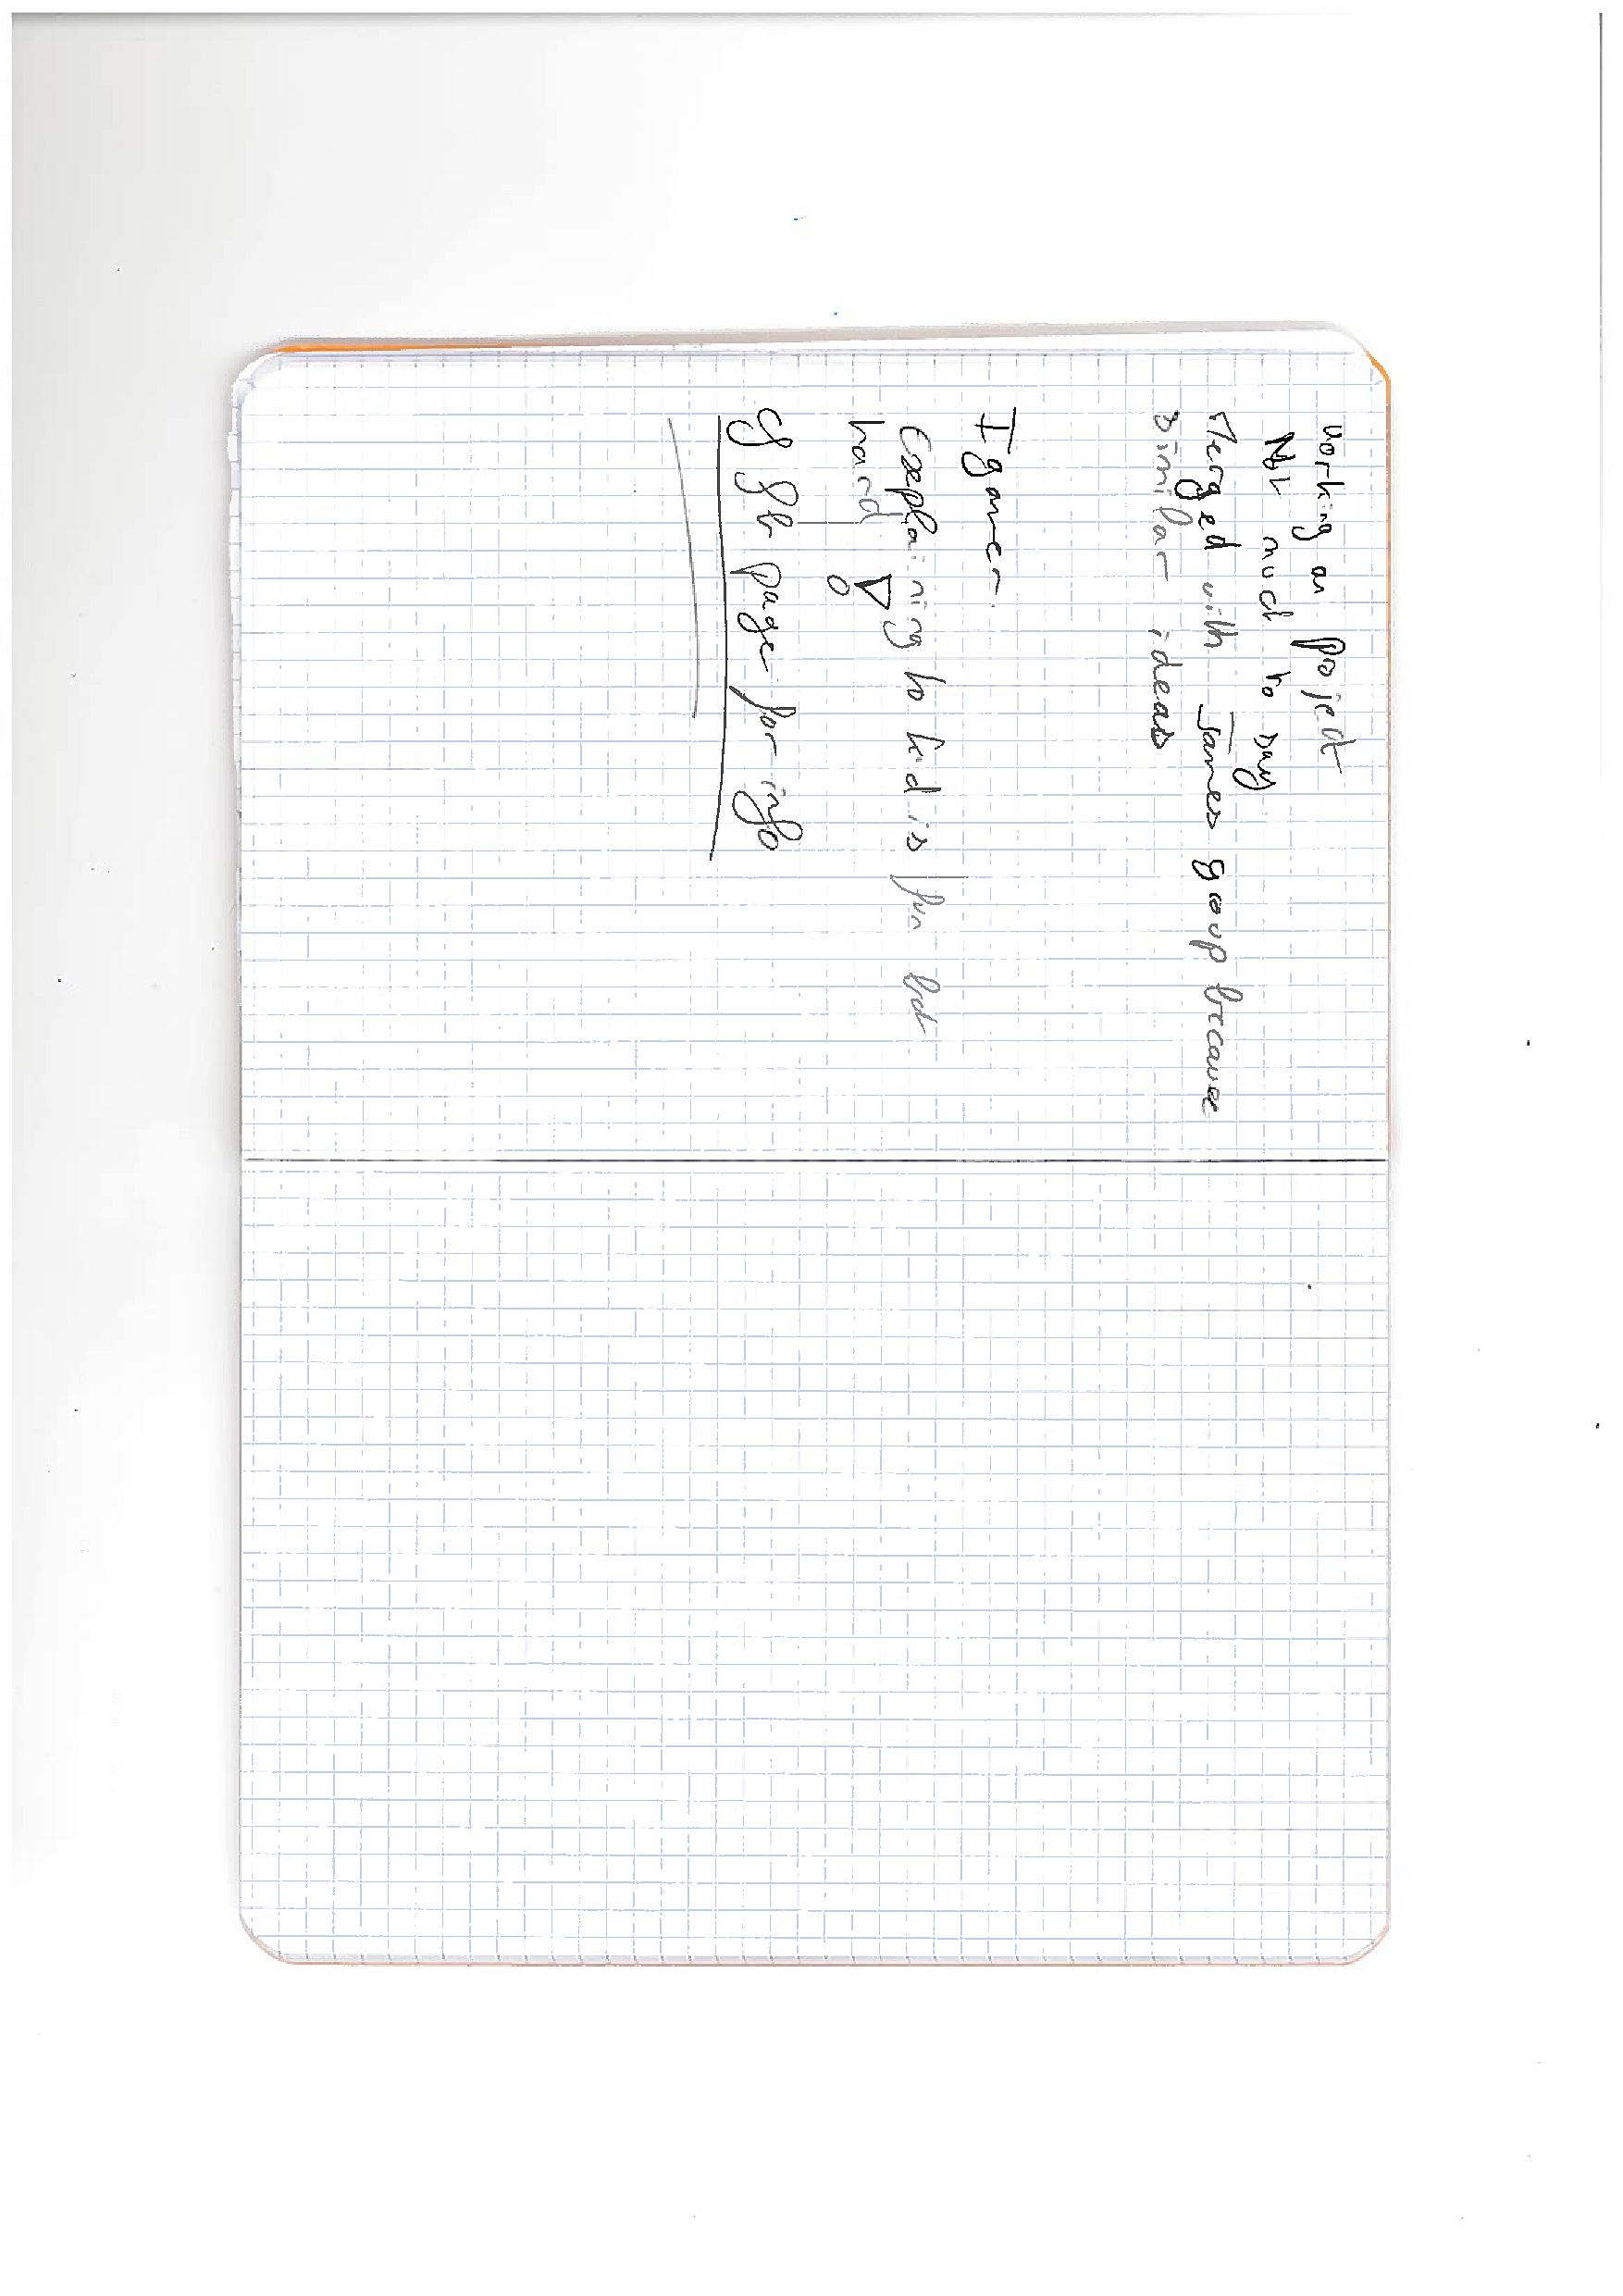 working on project
Not much to say
Merged with James group because
similar ideas
Explaining to kid is fun but
hard
page for info